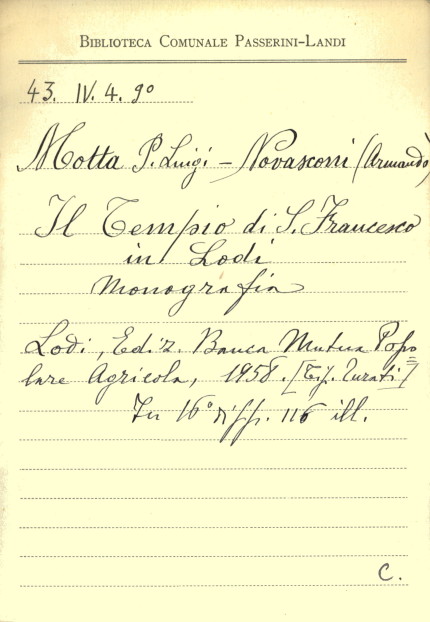 BIBLIOTECA COMUNALE PASSERINI-LANDI
43. IV. 4. 9º
Motta P. Luigi - Novasconi (Armando)
Il Tempio di S. Francesco
in Lodi
Monografia
Lodi, Ediz. Banca Mutua Popo
lare Agricola, 1958. [Tip. Turati]
In 16º di pp. 116 ill.
C.